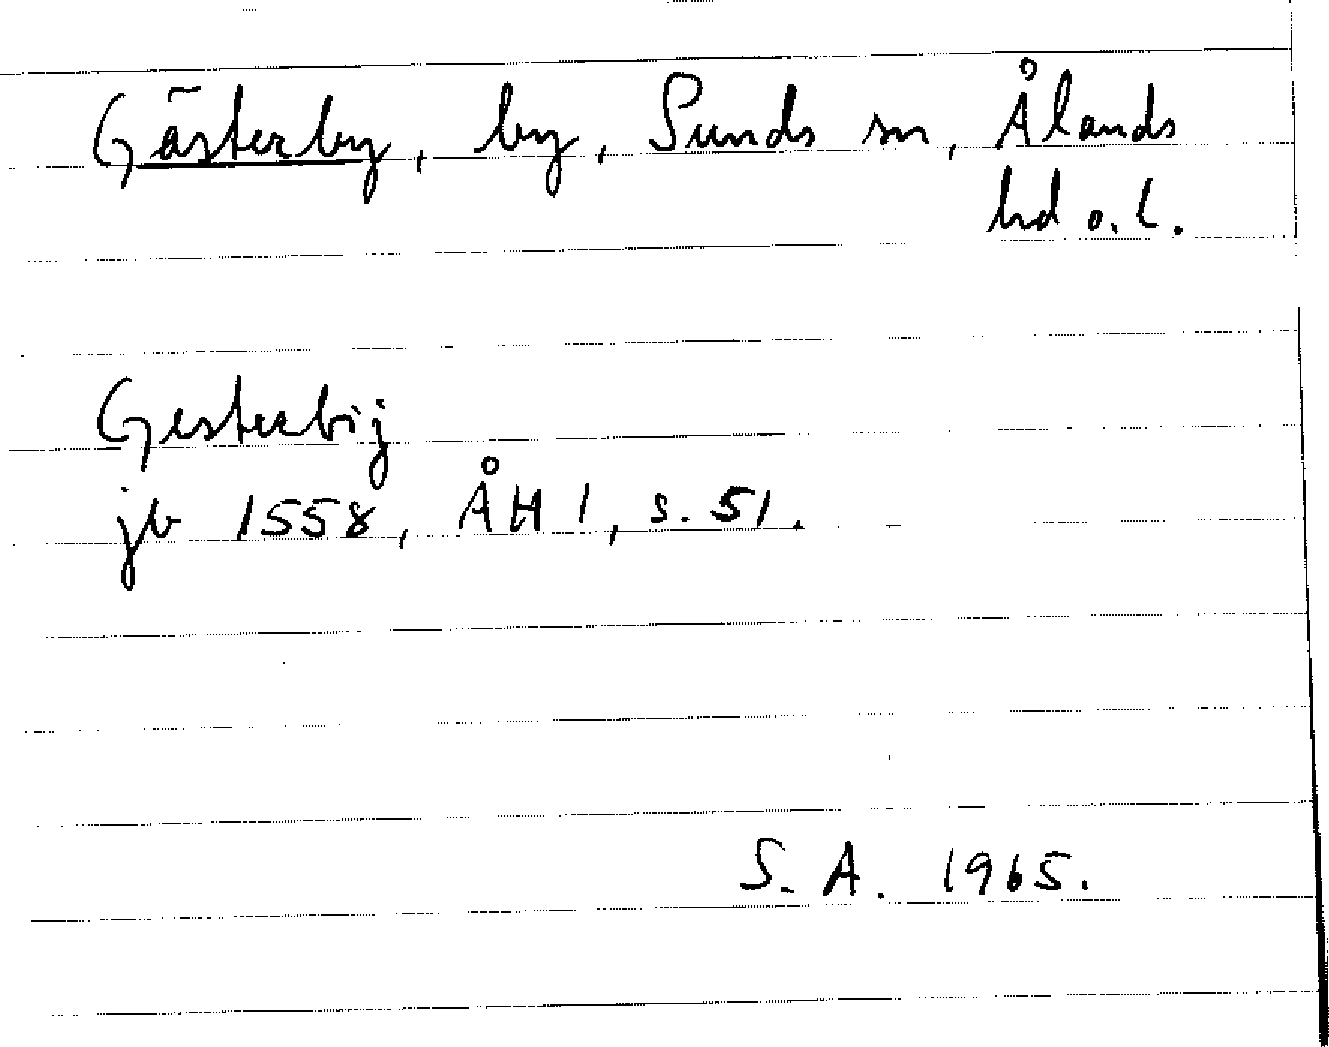 Gästerby, by, Sunds sn, Ålands
hd o. l.
Gesterbij
jb 1558, ÅH 1, s. 51.
S. A. 1965.